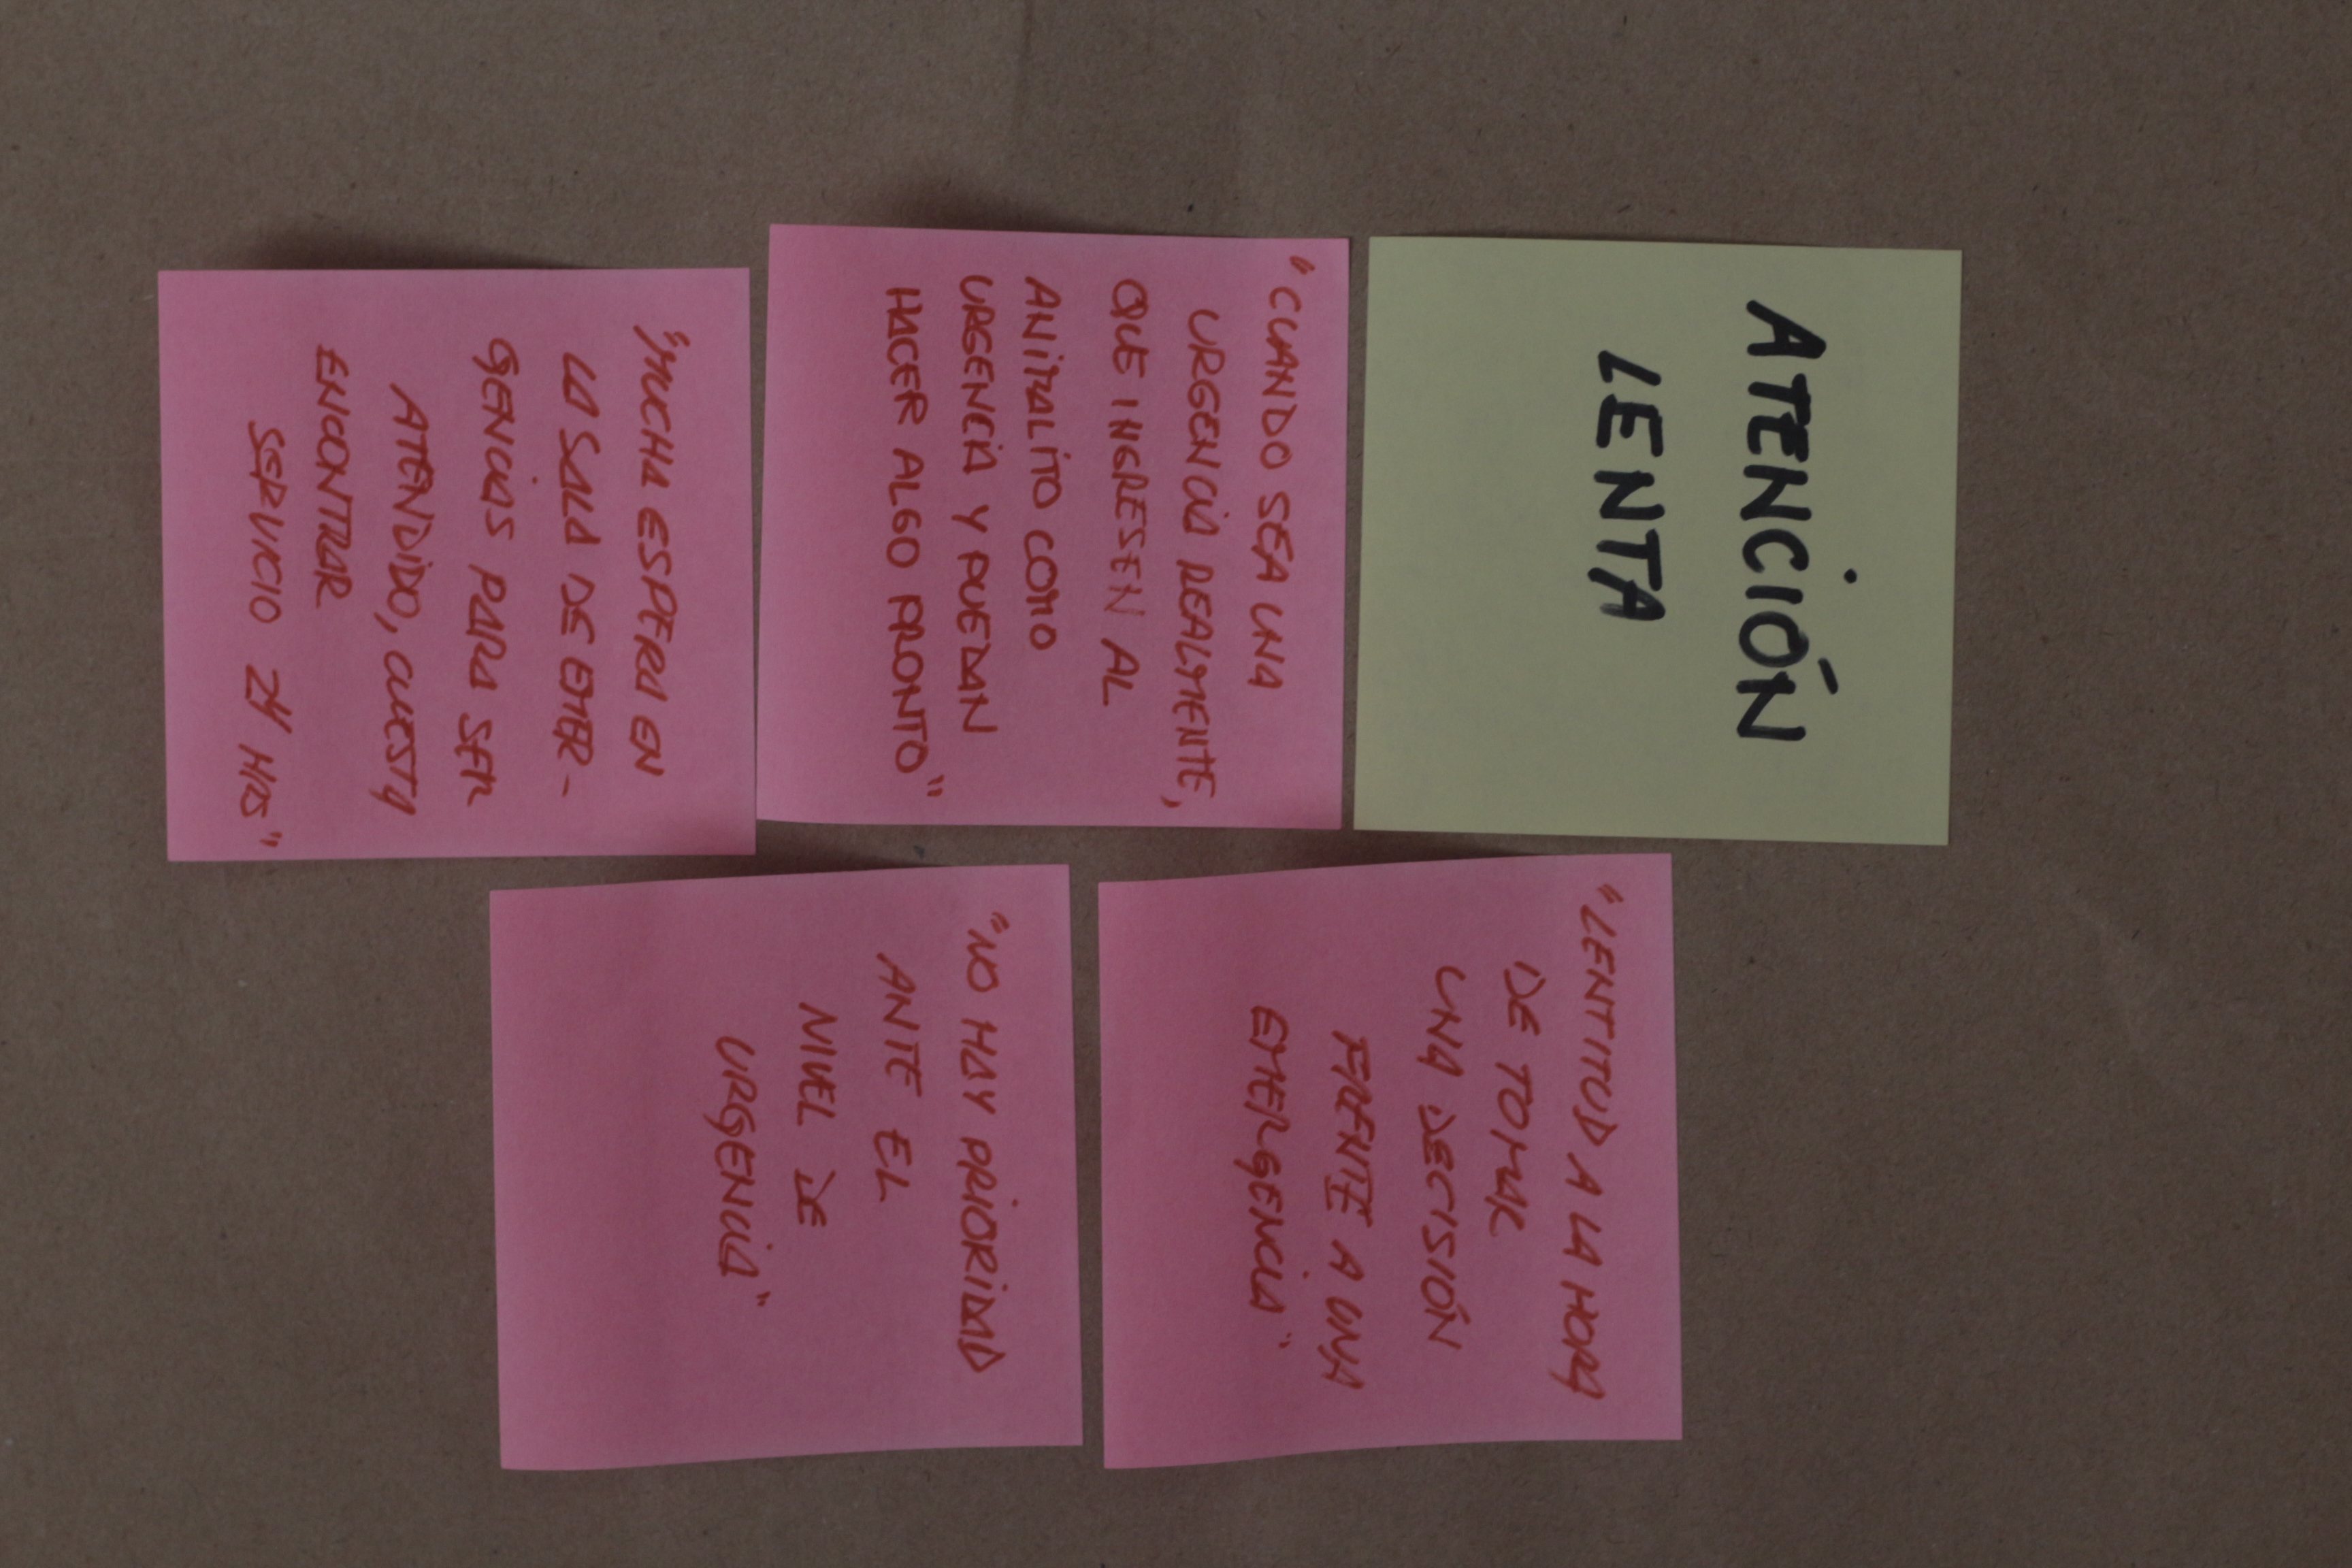 ATENCIÓN
LENTA
"CUANDO SEA UNA
URGENCIA REALMENTE,
QUE INGRESEN AL
ANIMALITO COMO
URGENCIA Y PUEDAN
HACER ALGO PRONTO"
"MUCHA ESPERA EN
LA SALA DE EMER-
GENCIAS PARA SER
ATENDIDO, CUESTA
ENCONTRAR
SERVICIO 24 HRS"
"LENTITUD A LA HORA
DE TOMAR
UNA DECISIÓN
FRENTE A UNA
EMERGENCIA"
"NO HAY PRIORIDAD
ANTE EL
NIVEL DE
URGENCIA"